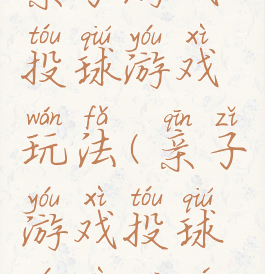 tóu qiú yóu xì
投球游戏
wán fǎ qīn zǐ
玩法(亲子
yóu xì tóu qiú
游戏投球